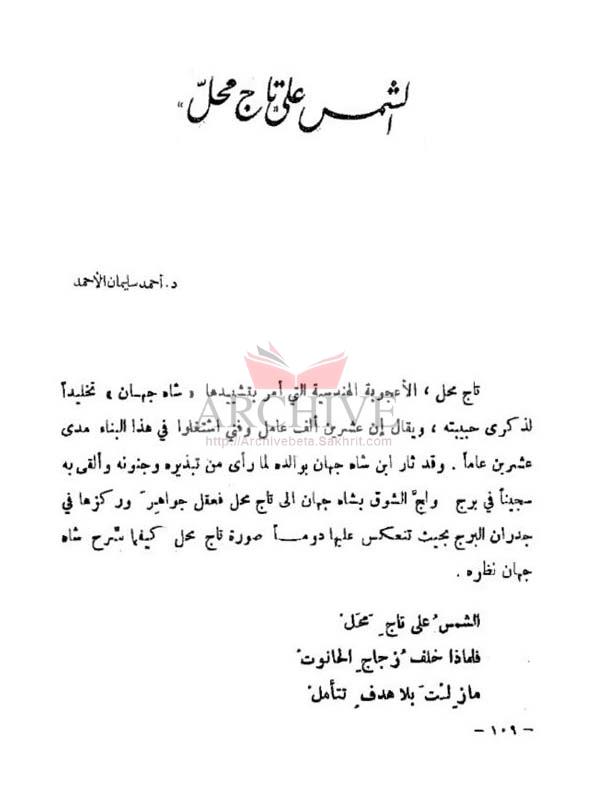 الشمس على تاج محلّ »
د. أحمد سليمان الأحمد
تاج محل ، الأعجوبة الهندسية التي أمر بتشييدها « شاه جهان » تخليداً
ARCHIVE
لذكرى حبيبته ، ويقال إن عشرين ألف عامل وفني اشتغلوا في هذا البناء مدى
http://Archivebeta.Sakhrit.com
عشرين عاماً . وقد ثار ابن شاه جهان بوالده لما رأى من تبذيره وجنونه وألقى به
سجيناً في برج ولجَّ الشوق بشاه جهان الى تاج محل فعقل جواهرَ وركزها في
جدران البرج بحيث تنعكس عليها دومـاً صورة تاج محل كيفما سَرح شاه
جهان نظاره .
الشمسُ على تاجِ مَحَلْ
فلماذا خلف زُجاجِ الحانوتْ
مازِلتَ بلا هدفٍ تتأملْ
– ١٠٩ –